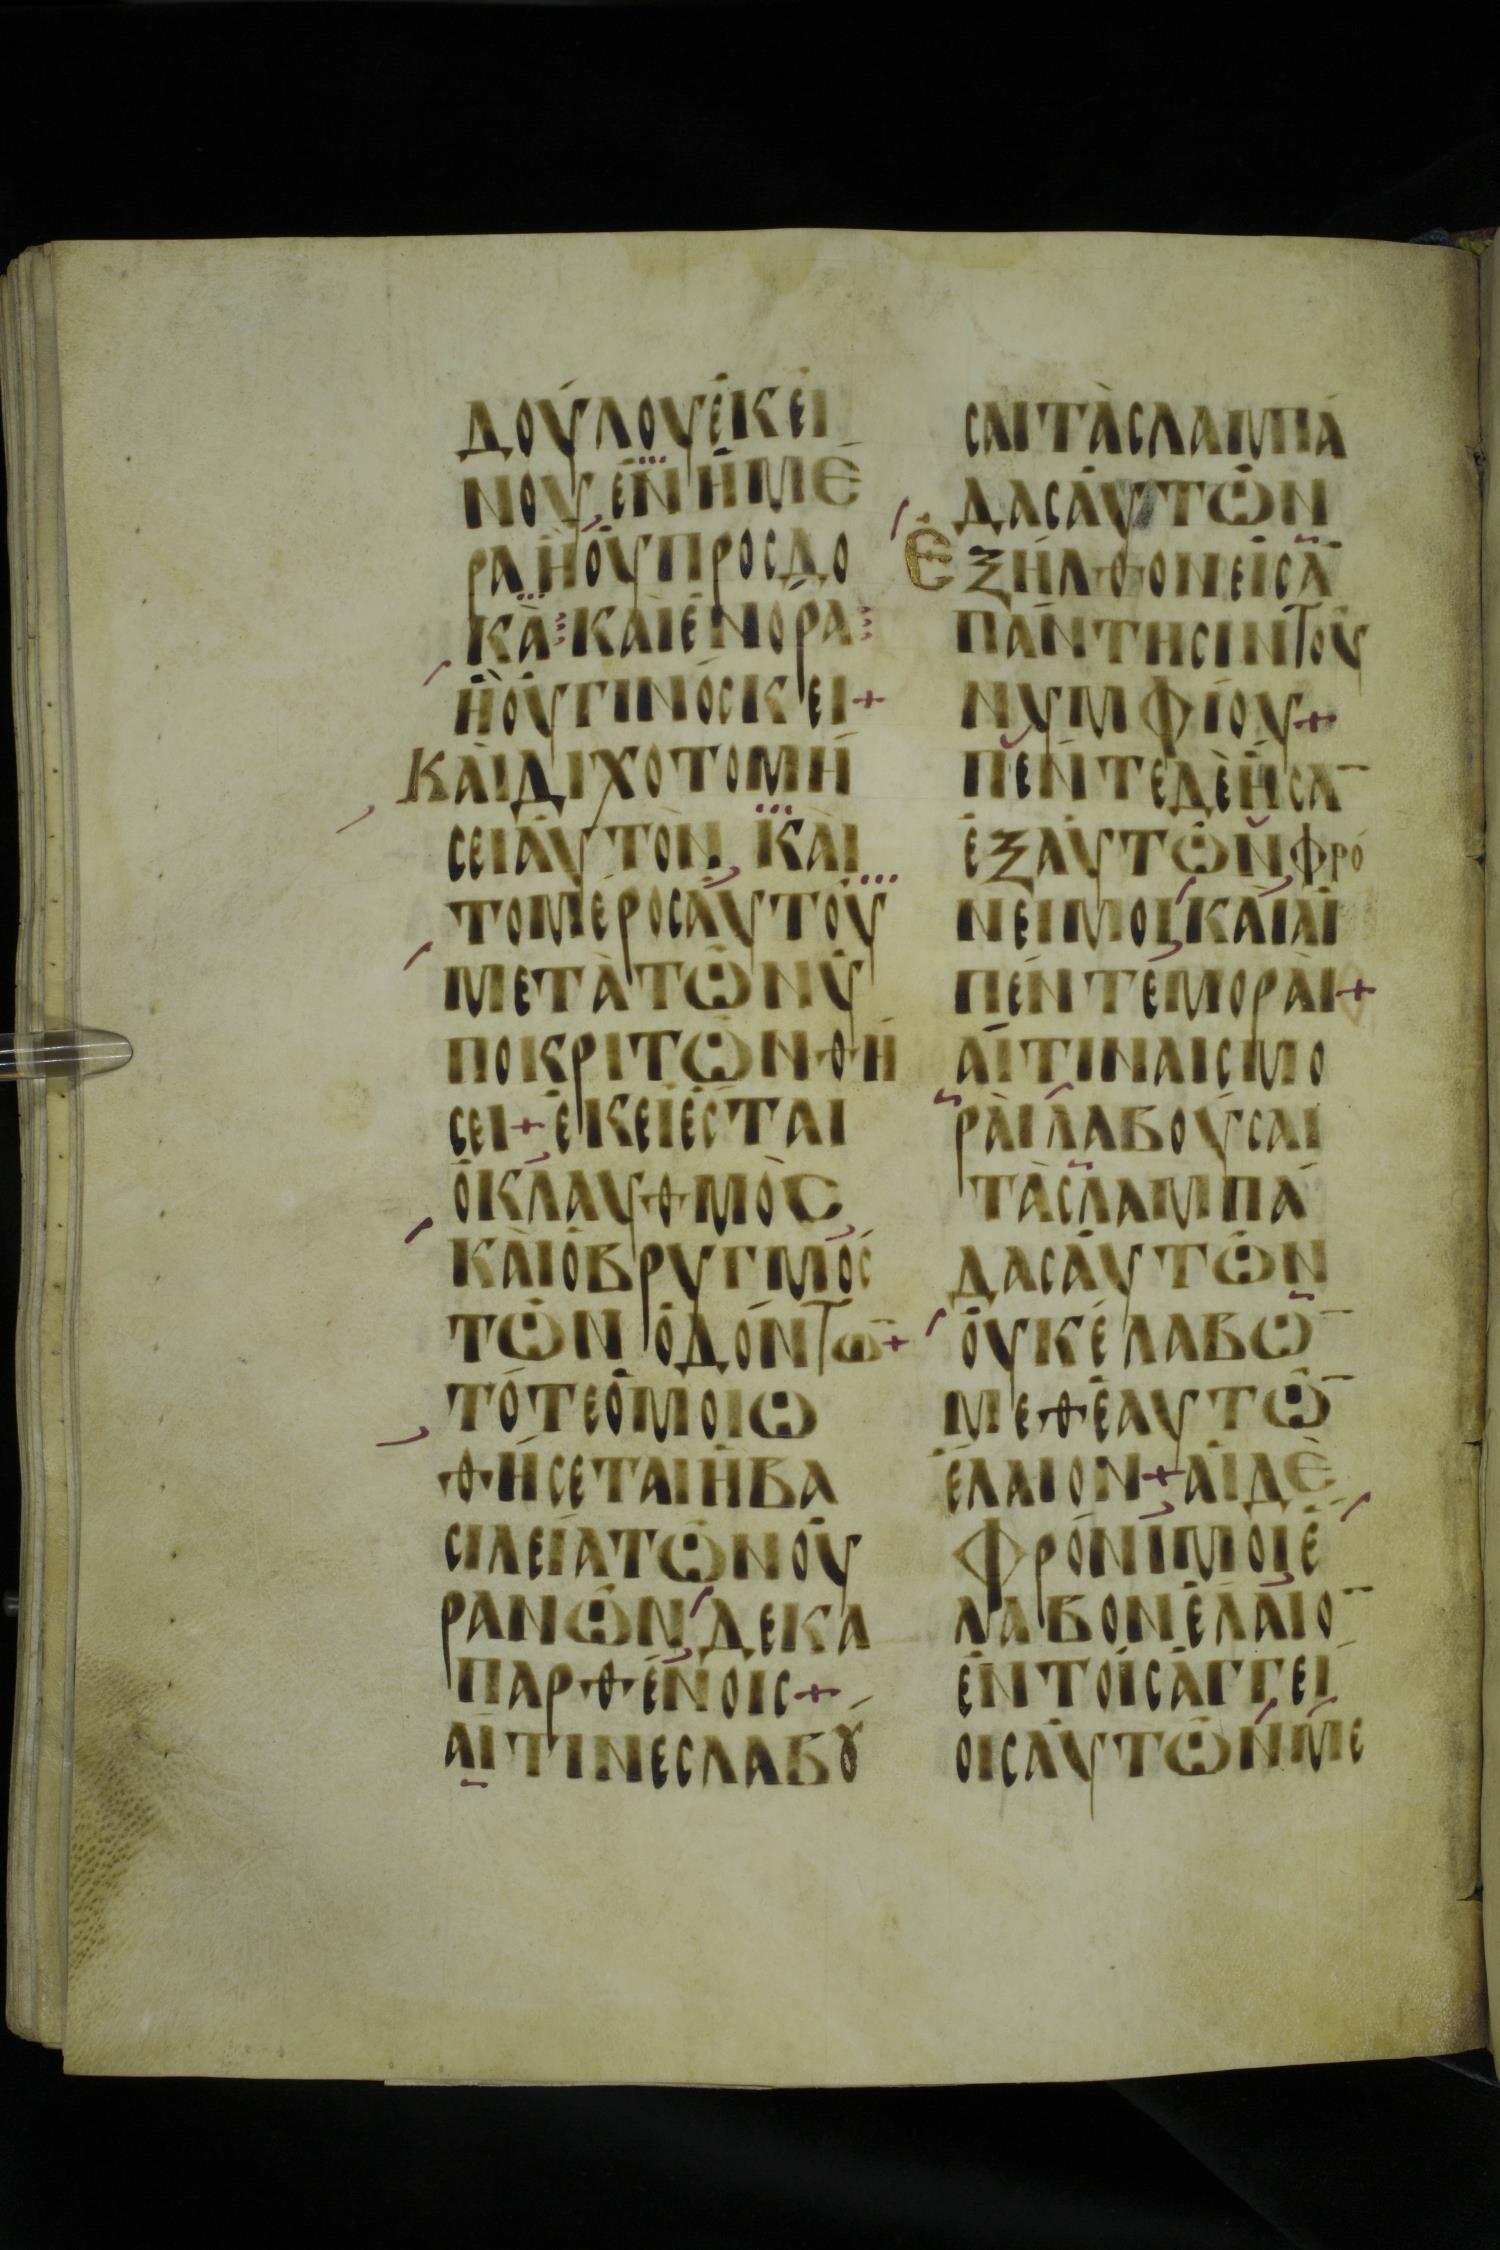 ΔΟΎΛΟΥἘΚΕΊ
ΝΟΥ ἘΝἩΜΈ
ΡΑ ἯΟΥ̓ΠΡΟΣΔΟ
ΚᾺ ΚΑῚἘΝΟΡΑ
ἯΟΥ̓ΓΙΝΌΣΚΕΙ+
ΚΑῚΔΙΧΟΤΟΜΉ
ΣΕΙΑΥ̓ΤῸΝ ΚΑῚ
ΤΟΜΈΡΟΣΑΥ̓ΤΟΥ͂
ΜΕΤᾺΤΩ͂ΝὙ
ΠΟΚΡΙΤΩ͂ΝΘΉ
ΣΕΙ+ἘΚΕΙ͂ἜΣΤΑΙ
ὉΚΛΑΥΘΜῸΣ
ΚΑῚὉΒΡΥΓΜῸΣ
ΤΩ͂Ν ὈΔΌΝΤΩ̄+
ΤΌΤΕὉΜΟΙΩ
ΘΉΣΕΤΑΙἩΒΑ
ΣΙΛΕΊΑΤΩ͂ΝΟΥ̓
ΡΑΝΩ͂Ν ΔΕΚΑ
ΠΑΡΘΈΝΟΙΣ+
ΑἽΤΙΝΕΣΛΑΒΟΥ͂
ΣΑΙΤᾺΣΛΑΜΠΆ
ΔΑΣΑΥ̓ΤΩ͂Ν
ἘΞΗ͂ΛΘΟΝΕἸΣᾺ
ΠΆΝΤΗΣΙΝΤΟΥ͂
ΝΥΜΦΊΟΥ+
ΠΈΝΤΕΔῈἮΣᾹ
ἘΞΑΥ̓ΤΩ͂Ν ΦΡΌ
ΝΕΙΜΟΙ ΚΑῚΑἹ
ΠΈΝΤΕ ΜΟΡΑῚ+
ΑἽΤΙΝΑΙΣΜΟ
ΡΑῚΛΑΒΟΥ͂ΣΑΙ
ΤᾺΣΛΑΜΠΆ
ΔΑΣΑΥ̓ΤΩ͂Ν
ΟΥ̓ΚἜΛΑΒΩ̄
ΜΕΘἘΑΥΤΩ̄͂
ἜΛΑΙΟΝ+ΑἹΔῈ
ΦΡΌΝΙΜΟΙἜ
ΛΑΒΟΝἜΛΑΙΟ̄
ἘΝΤΟΙ͂ΣἈΓΓΕΊ
ΟΙΣΑΥ̓ΤΩ͂Ν ΜΕ